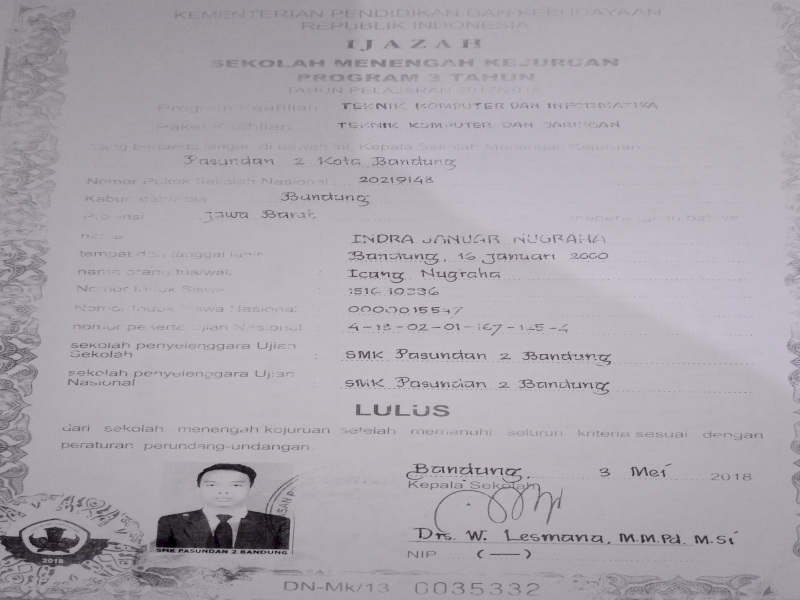 KEMENTERIAN PENDIDIKAN DAN KEBUDAYAAN
REPUBLIK INDONESIA
IJAZAH
SEKOLAH MENENGAH KEJURUAN
PROGRAM 3 TAHUN
TAHUN PELAJARAN 2017/2018
Program Keahlian : TEKNIK KOMPUTER DAN INFORMATIKA
Paket Keahlian : TEKNIK KOMPUTER DAN JARINGAN
Yang bertanda tangan di bawah ini, Kepala Sekolah Menengah Kejuruan
Pasundan 2 Kota Bandung
Nomor Pokok Sekolah Nasional : 20219148
Bandung
Provinsi Jawa Barat menerangkan bahwa
nama INDRA JANUAR NUGRAHA
tempat dan tanggal lahir Bandung, 16 Januari 2000
nama orang tua/wali : Icang Nugraha
Nomor Induk Siswa :
Nomor Induk Siswa Nasional : 0000015547
nomor peserta Ujian Nasional :
sekolah penyelenggara Ujian
Sekolah : SMK Pasundan 2 Bandung
sekolah penyelenggara Ujian
Nasional : SMK Pasundan 2 Bandung
LULUS
dari sekolah menengah kejuruan setelah memenuhi seluruh kriteria sesuai dengan
peraturan perundang-undangan.
Bandung, 3 Mei 2018
Kepala Sekolah
Drs. W. Lesmana, M.M.Pd. M.Si
NIP (—)
SMK PASUNDAN 2 BANDUNG
2018
DN-Mk/13 0035332